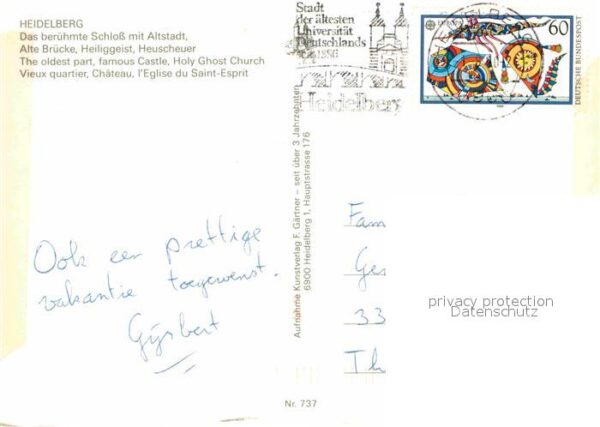 HEIDELBERG
Das berühmte Schloß mit Altstadt,
Alte Brücke, Heiliggeist, Heuscheuer
The oldest part, famous Castle, Holy Ghost Church
Vieux quartier, Château, l'Eglise du Saint-Esprit
Stadt
der ältesten
Universität
Deutschlands
1386
Heidelberg
EUROPA
60
DEUTSCHE BUNDESPOST
Aufnahme Kunstverlag F. Gärtner – seit über 3 Jahrzehnten
6900 Heidelberg 1, Hauptstrasse 176
Ook een prettige
vakantie toegewenst.
Gijsbert
Fam
Ges
33
Th
privacy protection
Datenschutz
Nr. 737